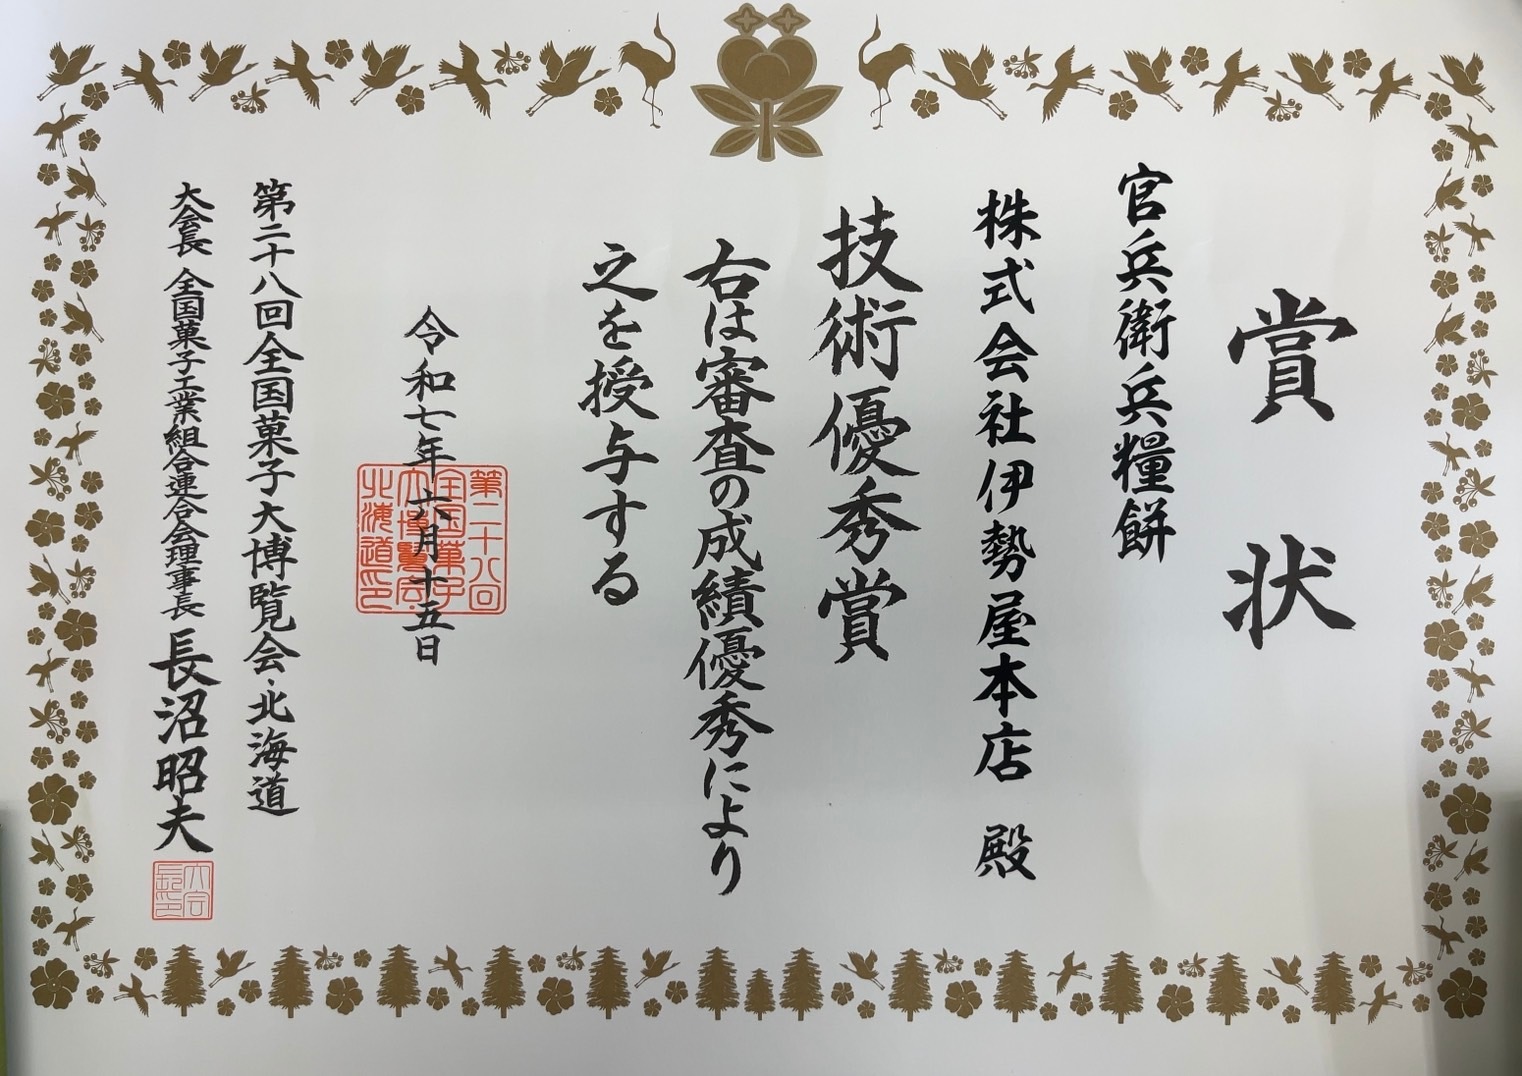 賞状
官兵衛兵糧餅
株式会社伊勢屋本店 殿
技術優秀賞
右は審査の成績優秀により
之を授与する
令和七年六月十五日
第二十八回
全国菓子
大博覧会・
北海道印
第二十八回全国菓子大博覧会・北海道
大会長 全国菓子工業組合連合会理事長 長沼昭夫
大会
長印